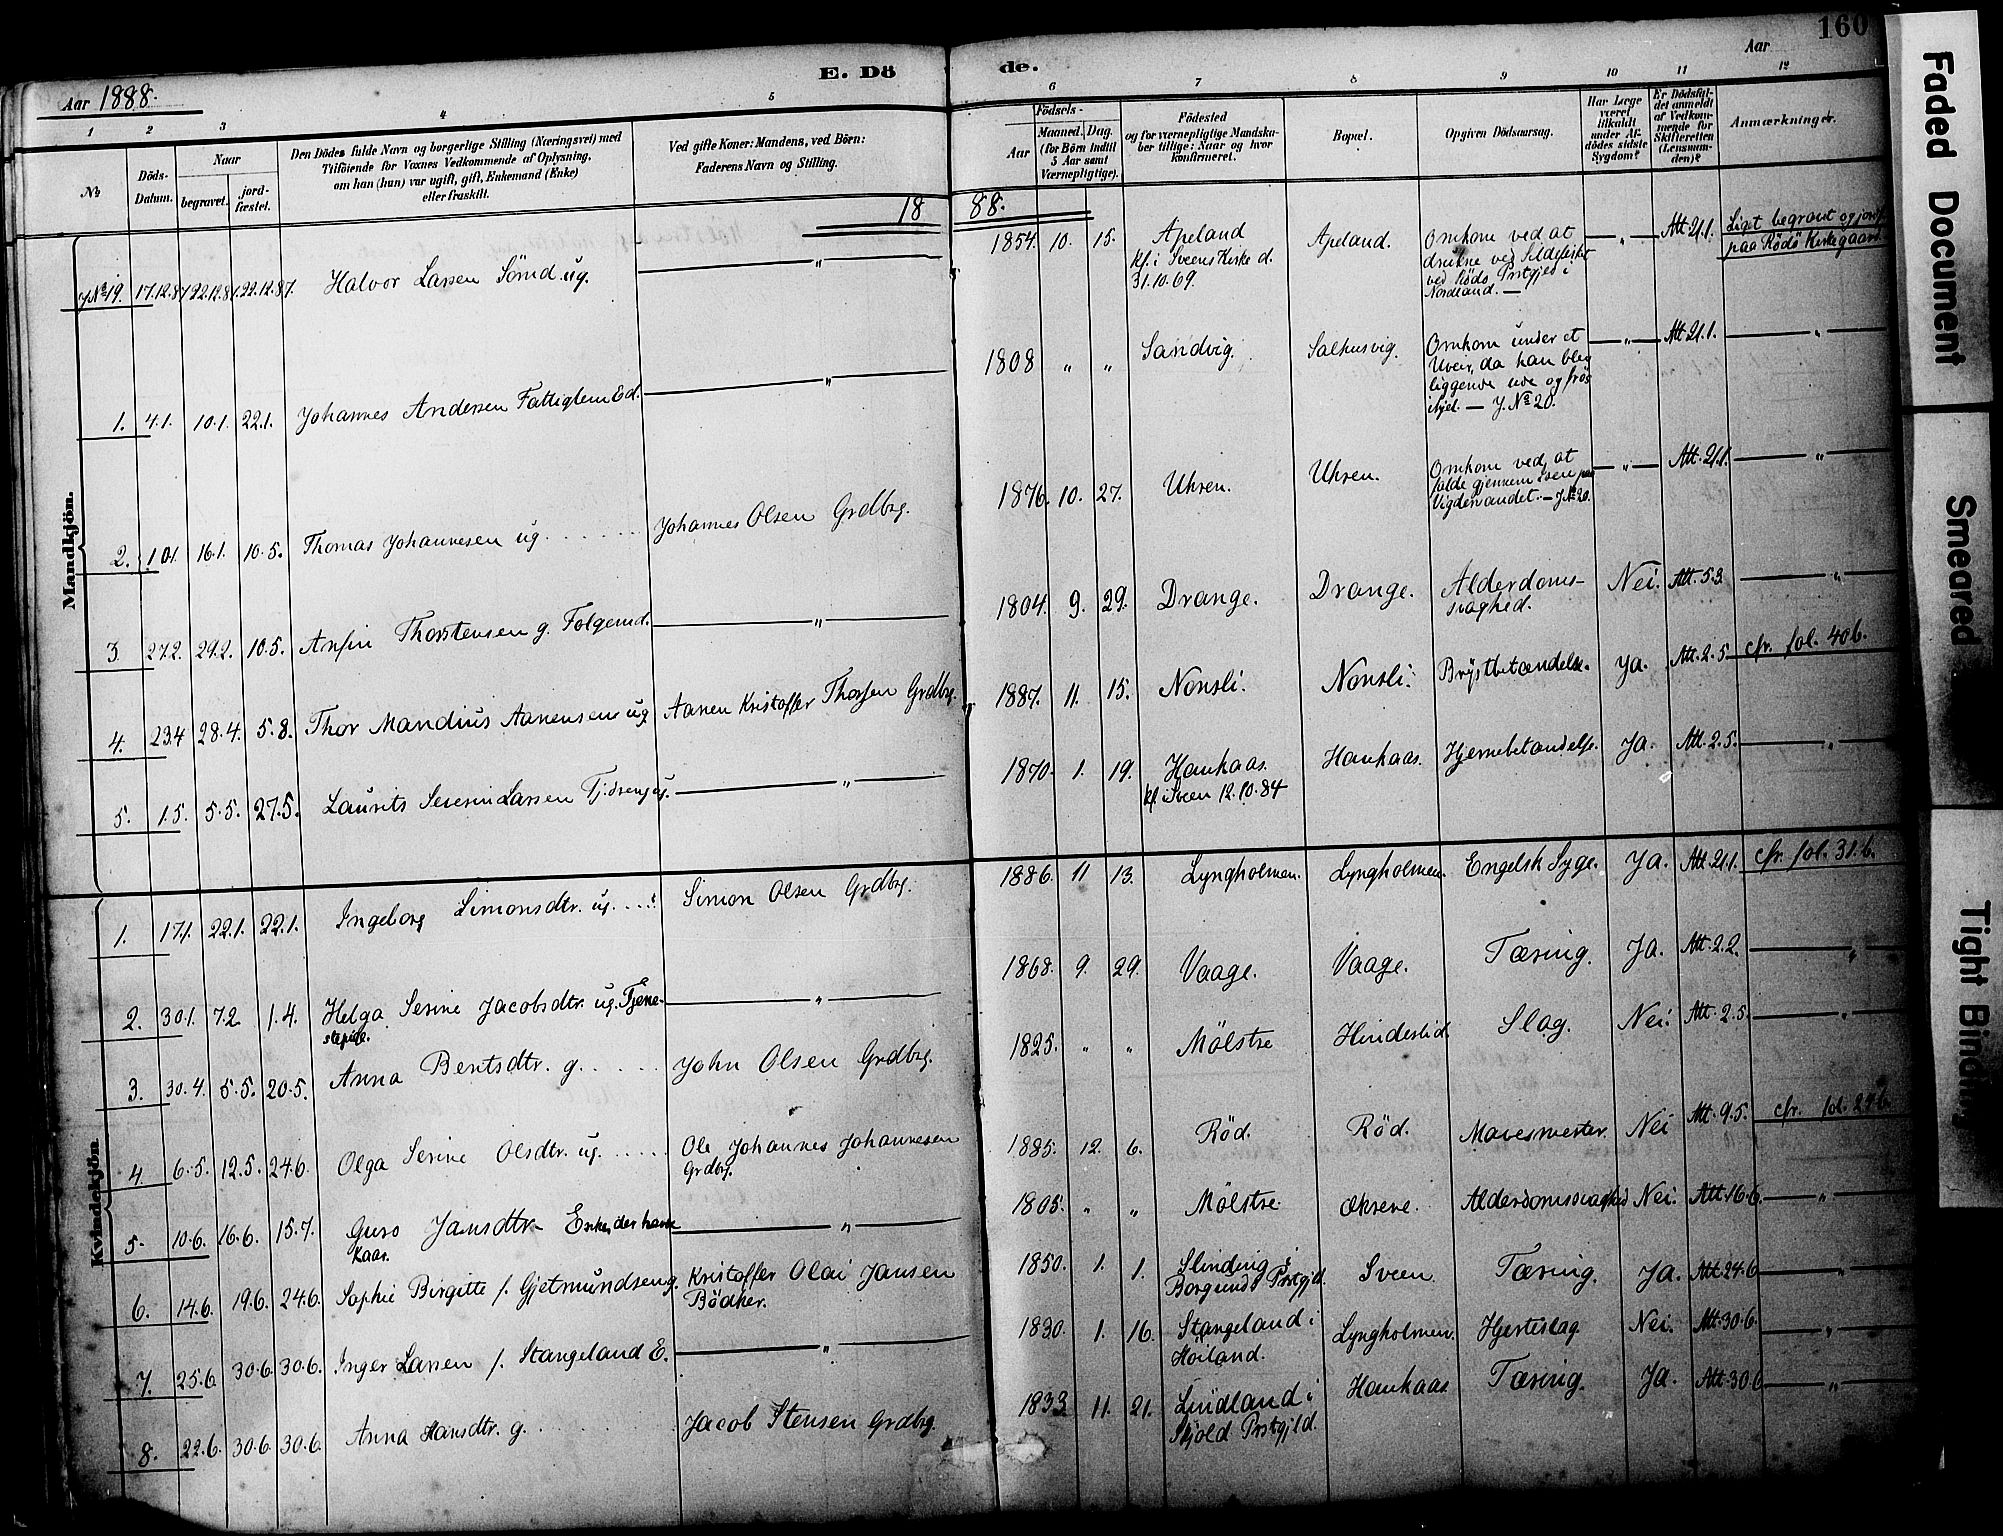 160
E. Döde.
Aar 1888.
Aar
1 2 3 4 5 6 7 8 9 10 11 12
No
Döds-Datum.
Naar
begravet.
jord-fæstet.
Den Dödes fulde Navn og borgerlige Stilling (Næringsvei) med
Tilföiende for Voxnes Vedkommende af Oplysning,
om han (hun) var ugift, gift, Enkemand (Enke)
eller fraskilt.
Ved gifte Koner: Mandens, ved Börn:
Faderens Navn og Stilling.
Födsels-
Aar
Maaned. Dag.
(for Börn indtil
5 Aar samt
Værnepligtige).
Födested
og for værnepligtige Mandska-
ber tillige: Naar og hvor
konfirmeret.
Bopæl.
Opgiven Dödsaarsag.
Har Læge
været
tilkaldt
under Af-
dödes sidste
Sygdom?
Er Dödsfal-
det anmeldt
af Vedkom-
mende for
Skifteretten
(Lensman-
den)?
Anmærkninger.
1888.
Mandkjön.
J No 19. 17.12.87 22.12.87. 22.12.87. Halvor Larsen Sömd ug. — „ — 1854. 10. 15. Apeland
kf. i Sveens Kirke d.
31.10.69.
Apeland. Omkom ved at
drukne ved Sildefisket
ved Rödö Prstgjed i
Nordland. —
— „ — Att. 21.1. Ligt begravt og jordf.
paa Rödö Kirkegaard.
1. 4.1. 10.1. 22.1. Johannes Andersen Fattiglem Ed. — „ — 1808 „ „ Sandvig. Salhusvig. Omkom under et
Uveir, da han blev
liggende ude og frös
ihjel. — J. No 20.
— „ — Att. 21.1. — „ —
2. 10.1. 16.1. 10.5. Thomas Johannesen ug. Johannes Olsen Grdbrg. 1876. 10. 27. Uhren. Uhren. Omkom ved at
falde gjennem Isen paa
Vigdervandet. — J. No 20.
— „ — Att. 21.1. — „ —
3. 27.2. 29.2. 10.5. Anfin Thorstensen g. Folgemd. — „ — 1804. 9. 29. Drange. Drange. Alderdoms-
svaghed.
Nei. Att. 5.3. — „ —
4. 23.4 28.4. 5.8. Thor Mandius Aanensen ug. Aanen Kristoffer Thorsen Grdbrg. 1887. 11. 15. Nonsli. Nonsli. Brystbetændelse. Ja. Att. 2.5. cfr. fol. 406.
5. 1.5. 5.5. 27.5. Laurits Severin Larsen Tjdreng ug. — „ — 1870. 1. 19. Haukaas.
kf. i Sveen 12.10.84
Haukaas. Hjernebetændelse. Ja. Att. 2.5. — „ —
Kvindekjön.
1. 17.1. 22.1. 22.1. Ingeborg Simonsdtr. ug. Simon Olsen Grdbrg. 1886. 11 13. Lyngholmen. Lyngholmen. Engelsk Syge. Ja. Att. 21.1. cfr. fol. 316.
2. 30.1. 7.2. 1.4. Helga Serine Jacobsdtr. ug. Tjene-
stepige.
— „ — 1868. 9. 29. Vaage. Vaage. Tæring. Ja. Att. 2.2. — „ —
3. 30.4. 5.5. 20.5. Anna Bentsdtr. g. John Olsen Grdbrg. 1825. „ „ Mölstre Hindeslid. Slag. Nei. Att. 2.5. — „ —
4. 6.5. 12.5. 24.6. Olga Serine Olsdtr. ug. Ole Johannes Johannesen
Grdbrg.
1885. 12. 6. Röd. Röd. Mavesmerter. Nei Att. 9.5. cfr. fol. 246.
5. 10.6. 16.6. 15.7. Guro Jansdtr. Enke, der havde
Kaar.
— „ — 1805. „ „ Mölstre Økrene. Alderdomssvaghed Nei. Att. 16.6. — „ —
6. 14.6. 19.6. 24.6. Sophie Birgitte f. Gjetmundsen g. Kristoffer Olai Jansen
Bödker.
1850. 1. 1. Slinding i
Borgunds Prstgjld.
Sveen. Tæring. Ja. Att. 24.6. — „ —
7. 25.6. 30.6. 30.6. Inger Larsen f. Stangeland E. — „ — 1830. 1. 16. Stangeland i
Höiland.
Lyngholmen. Hjerteslag. Nei. Att. 30.6. — „ —
8. 22.6. 30.6. 30.6. Anna Hansdtr. g. Jacob Stensen Grdbrg. 1833 11. 21. Lindland i
Skjold Prstgjld.
Haukaas Tæring. Ja. Att. 30.6 — „ —
Faded Document
Smeared
Tight Binding